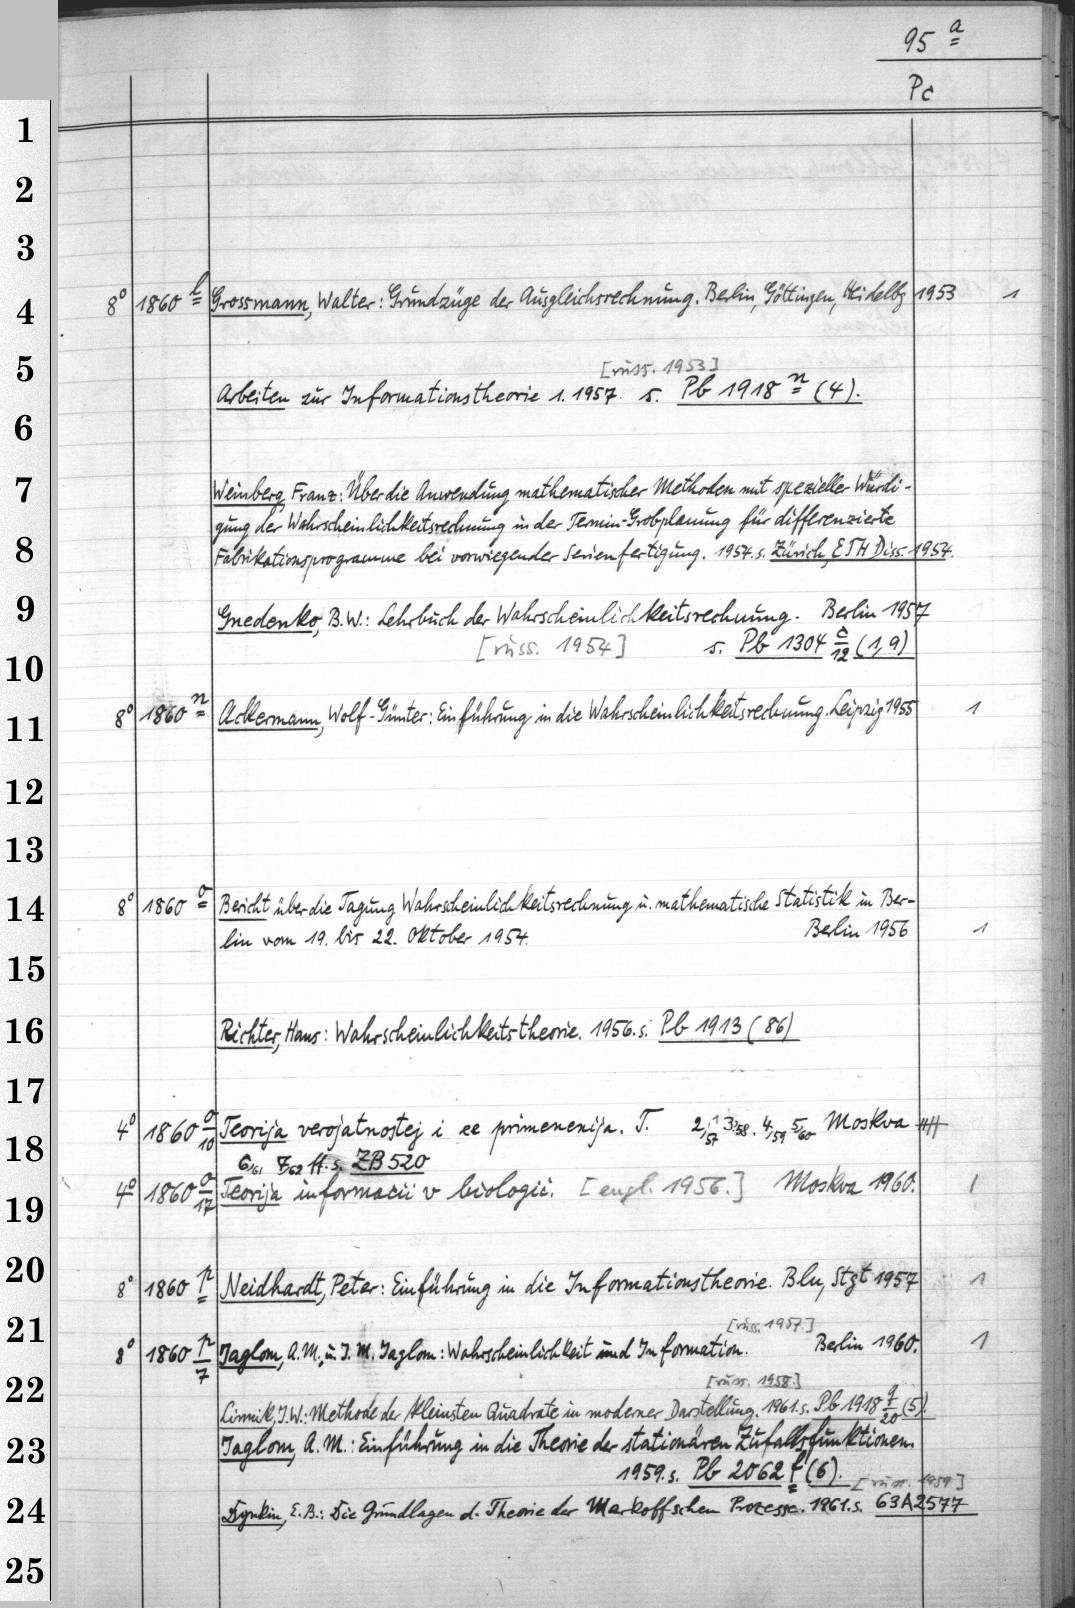 95 a
Pc
1
2
3
4 8° 1860 l Grossmann, Walter: Grundzüge der Ausgleichsrechnung. Berlin, Göttingen, Heidelbg 1953 1
5 [russ. 1953]
Arbeiten zur Informationstheorie 1. 1957. s. Pb 1918 n (4).
6
7 Weinberg, Franz: Über die Anwendung mathematischer Methoden mit spezieller Würdi-
gung der Wahrscheinlichkeitsrechnung in der Termin-Grobplanung für differenzierte
8 Fabrikationsprogramme bei vorwiegender Serienfertigung. 1954. s. Zürich, ETH Diss. 1954.
9 Gnedenko, B.W.: Lehrbuch der Wahrscheinlichkeitsrechnung. Berlin 1957
[russ. 1954] s. Pb 1304 c/12 (1,9)
10
11 8° 1860 n Ackermann, Wolf-Günter: Einführung in die Wahrscheinlichkeitsrechnung. Leipzig 1955 1
12
13
14 8° 1860 o Bericht über die Tagung Wahrscheinlichkeitsrechnung u. mathematische Statistik in Ber-
lin vom 19. bis 22. Oktober 1954. Berlin 1956 1
15
16 Richter, Hans: Wahrscheinlichkeitstheorie. 1956. s. Pb 1913 (86)
17
18 4° 1860 o/10 Teorija verojatnostej i ee primenenija. T. 2/57 3/58. 4/59 5/60 Moskva
6/61 7/62 ff. s. ZB 520
4° 1860 o/17 Teorija informacii v biologii. [engl. 1956.] Moskva 1960. 1
19
20 8° 1860 p Neidhardt, Peter: Einführung in die Informationstheorie. Bln, Stgt 1957 1
21 [russ. 1957.]
8° 1860 p/7 Jaglom, A.M., u. I.M. Jaglom: Wahrscheinlichkeit und Information. Berlin 1960. 1
22 [russ. 1958]
Linnik, J.W.: Methode der kleinsten Quadrate in moderner Darstellung. 1961. s. Pb 1918 q/20 (5).
23 Jaglom, A.M.: Einführung in die Theorie der stationären Zufallsfunktionen.
1959. s. Pb 2062 f (6). [russ. 1959]
24 Dynkin, E.B.: Die Grundlagen d. Theorie der Markoffschen Prozesse. 1961. s. 63A2577
25